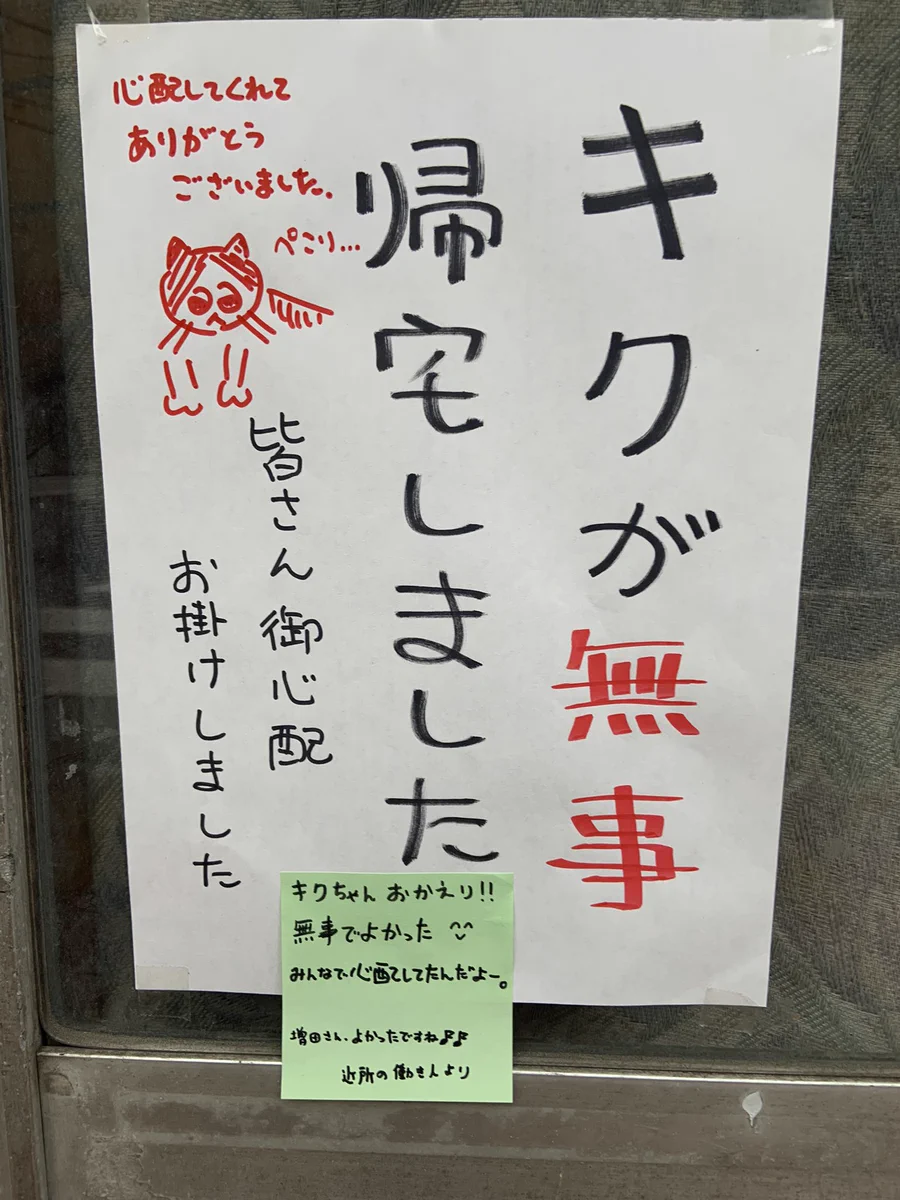 キクが無事
帰宅しました
皆さん御心配
お掛けしました
心配してくれて
ありがとう
ございました。
ぺこり…
キクちゃん おかえり!!
無事でよかった
みんなで心配してたんだよー。
増田さん、よかったですね♪♪
近所の働き人より